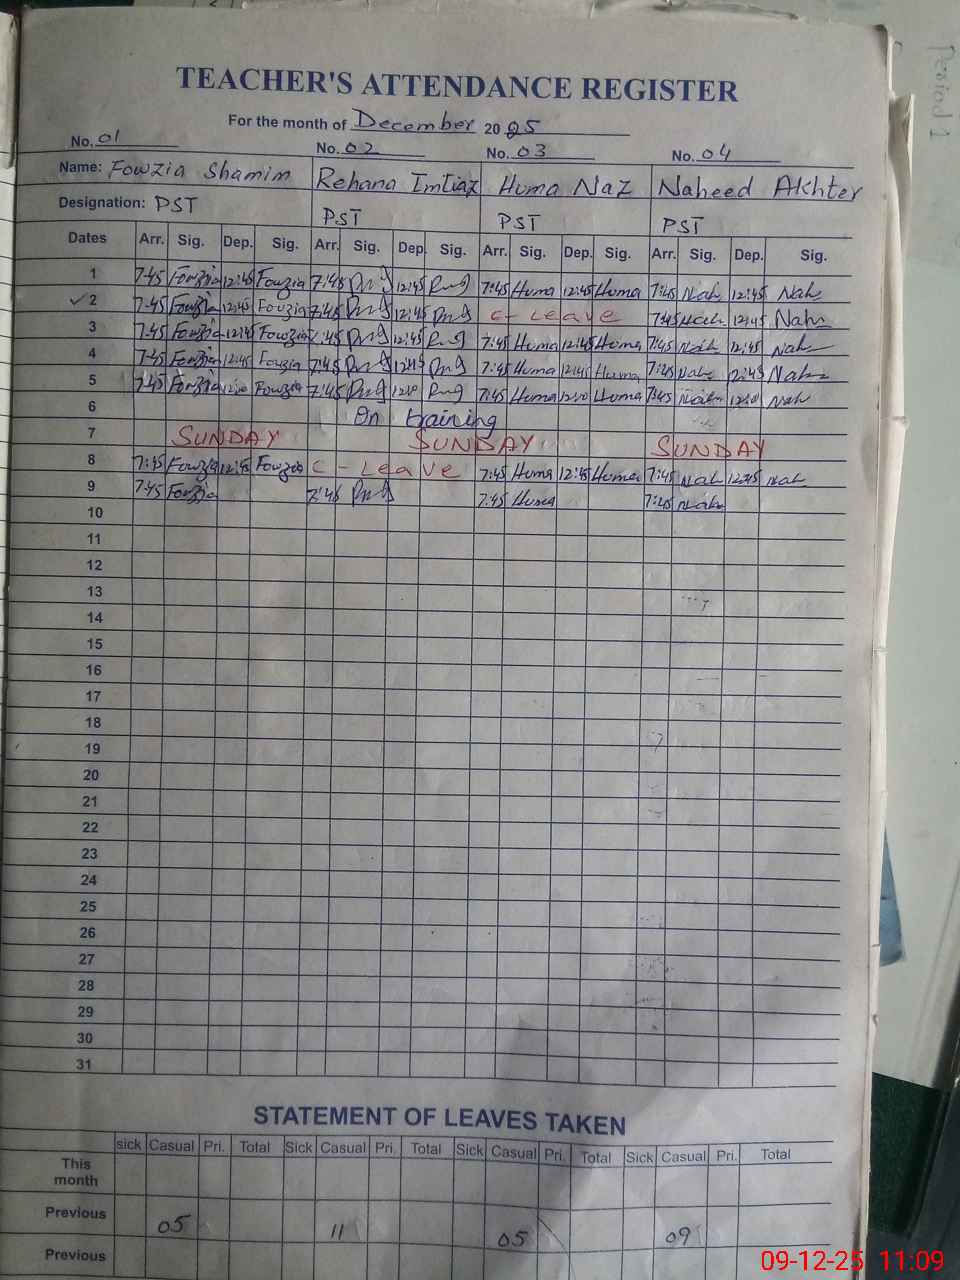 TEACHER'S ATTENDANCE REGISTER
For the month of December 2025
No. 01 No. 02 No. 03 No. 04
Name: Fowzia Shamim Rehana Imtiaz Huma Naz Naheed Akhter
Designation: PST PST PST PST
Dates Arr. Sig. Dep. Sig. Arr. Sig. Dep. Sig. Arr. Sig. Dep. Sig. Arr. Sig. Dep. Sig.
1 7:45 Fowzia 12:45 Fowzia 7:45 12:45 7:45 Huma 12:45 Huma 7:45 Nah 12:45 Nah
✓2 7:45 Fowzia 12:45 Fowzia 7:45 12:45 C- Leave 7:45 Nah 12:45 Nah
3 7:45 Fowzia 12:45 Fowzia 7:45 12:45 7:45 Huma 12:45 Huma 7:45 Nah 12:45 Nah
4 7:45 Fowzia 12:45 Fowzia 7:45 12:45 7:45 Huma 12:45 Huma 7:45 Nah 12:45 Nah
5 7:45 Fowzia Fowzia 7:45 7:45 Huma Huma 7:45 Nah Nah
6 On training
7 SUNDAY SUNDAY SUNDAY
8 7:45 Fowzia 12:45 Fowzia C - Leave 7:45 Huma 12:45 Huma 7:45 Nah 12:45 Nah
9 7:45 Fowzia 7:45 7:45 Huma 7:45 Nah
10
11
12
13
14
15
16
17
18
19
20
21
22
23
24
25
26
27
28
29
30
31
STATEMENT OF LEAVES TAKEN
sick Casual Pri. Total Sick Casual Pri. Total Sick Casual Pri. Total Sick Casual Pri. Total
This month
Previous 05 11 05 09
Previous
Period 1
09-12-25 11:09